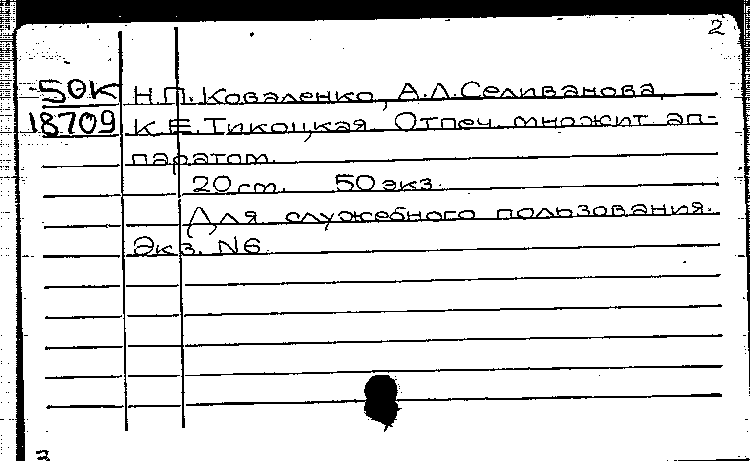 2
50К Н.П. Коваленко, А.Л. Селиванова,
18709 К.Е. Тикоцкая. Отпеч. множит ап-
паратом.
20 ст. 50 экз.
Для служебного пользования.
Экз. N6.
3